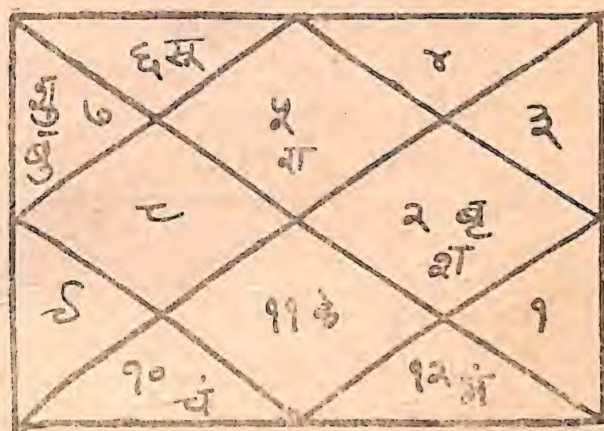 ६ सू
४
बु शु ७
५
रा
३
८
२ बृ
श
९
११ के
१
१० चं
१२ मं